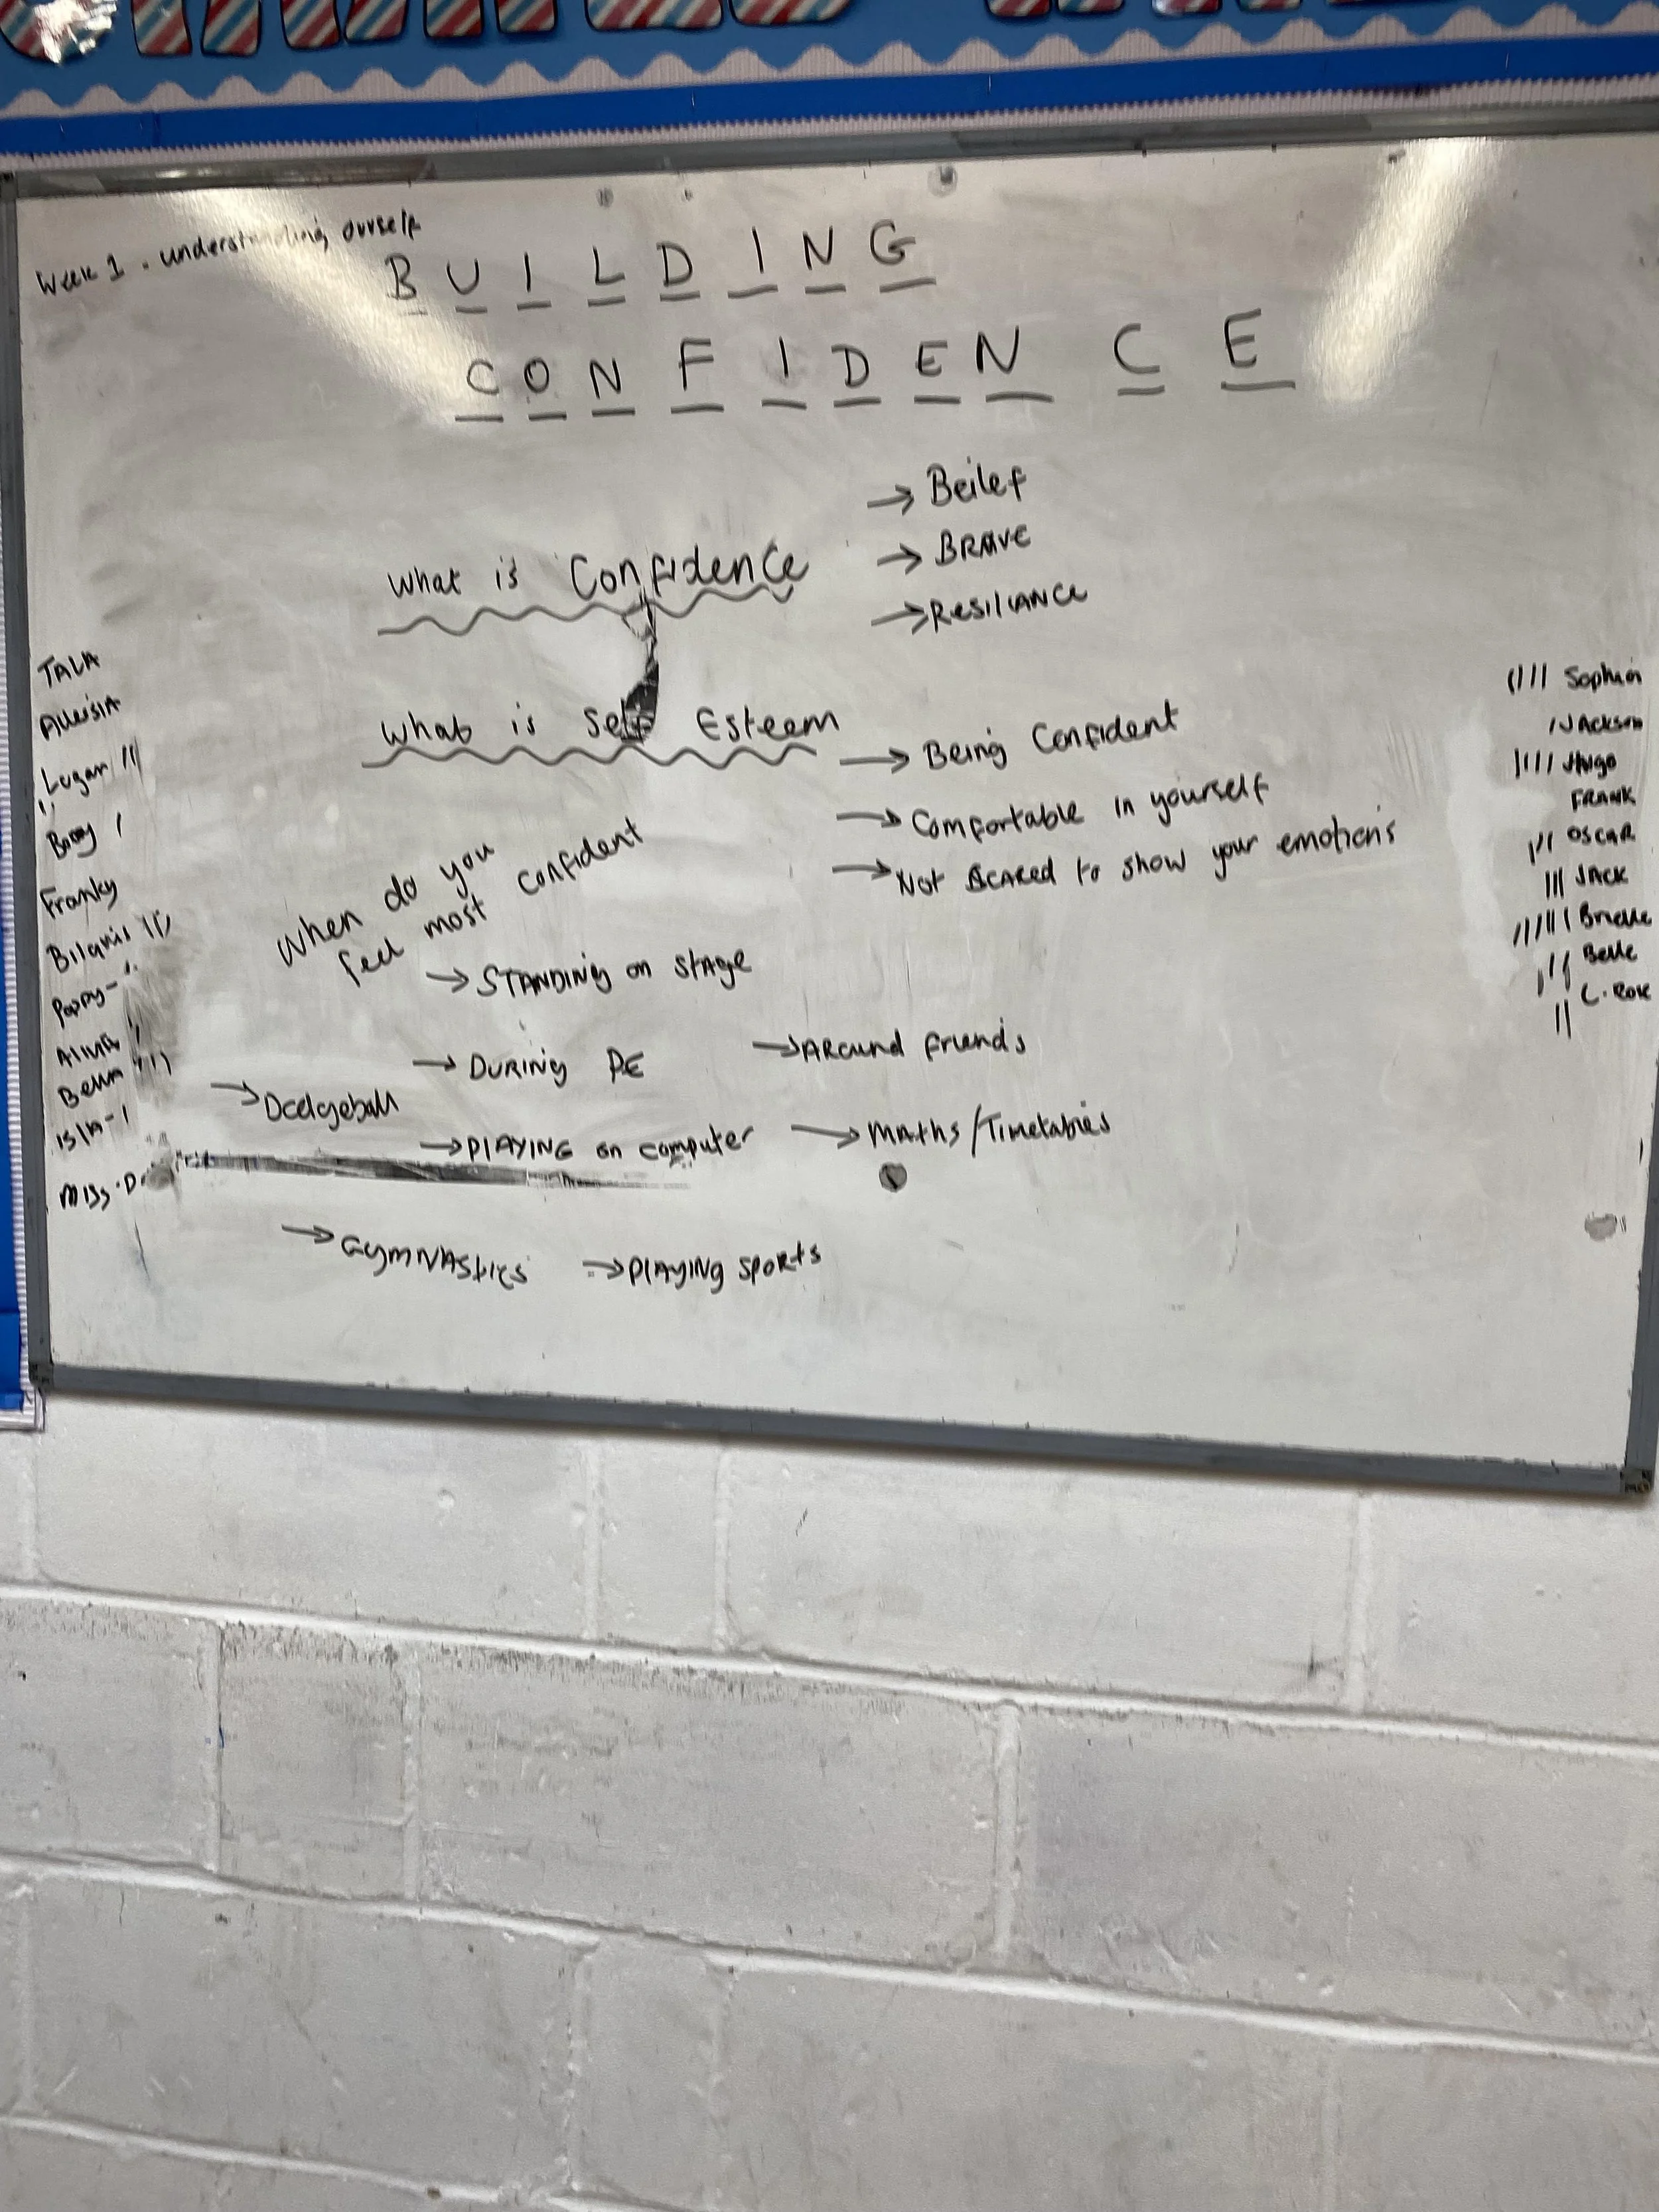 Week 1 - understanding ourself
B U I L D I N G
C O N F I D E N C E
→ Beilef
→ BRAVE
→ Resiliance
What is Confidence
What is Self Esteem
→ Being Confident
→ Comfortable in yourself
→ Not Scared to show your emotions
When do you
feel most confident
→ STANDING on stage
→ DURING PE
→ AROUND friends
→ Dodgeball
→ PLAYING on computer
→ Maths/Timetables
→ GYMNAStics
→ PlAyiNg spoRts
TALA
Logan
Franky
Bilqnis
Poppy-
Bella
Isla-
Miss.D
Sophia
Jackson
Hugo
FRANK
OSCAR
JACK
Brielle
Belle
C.Rose